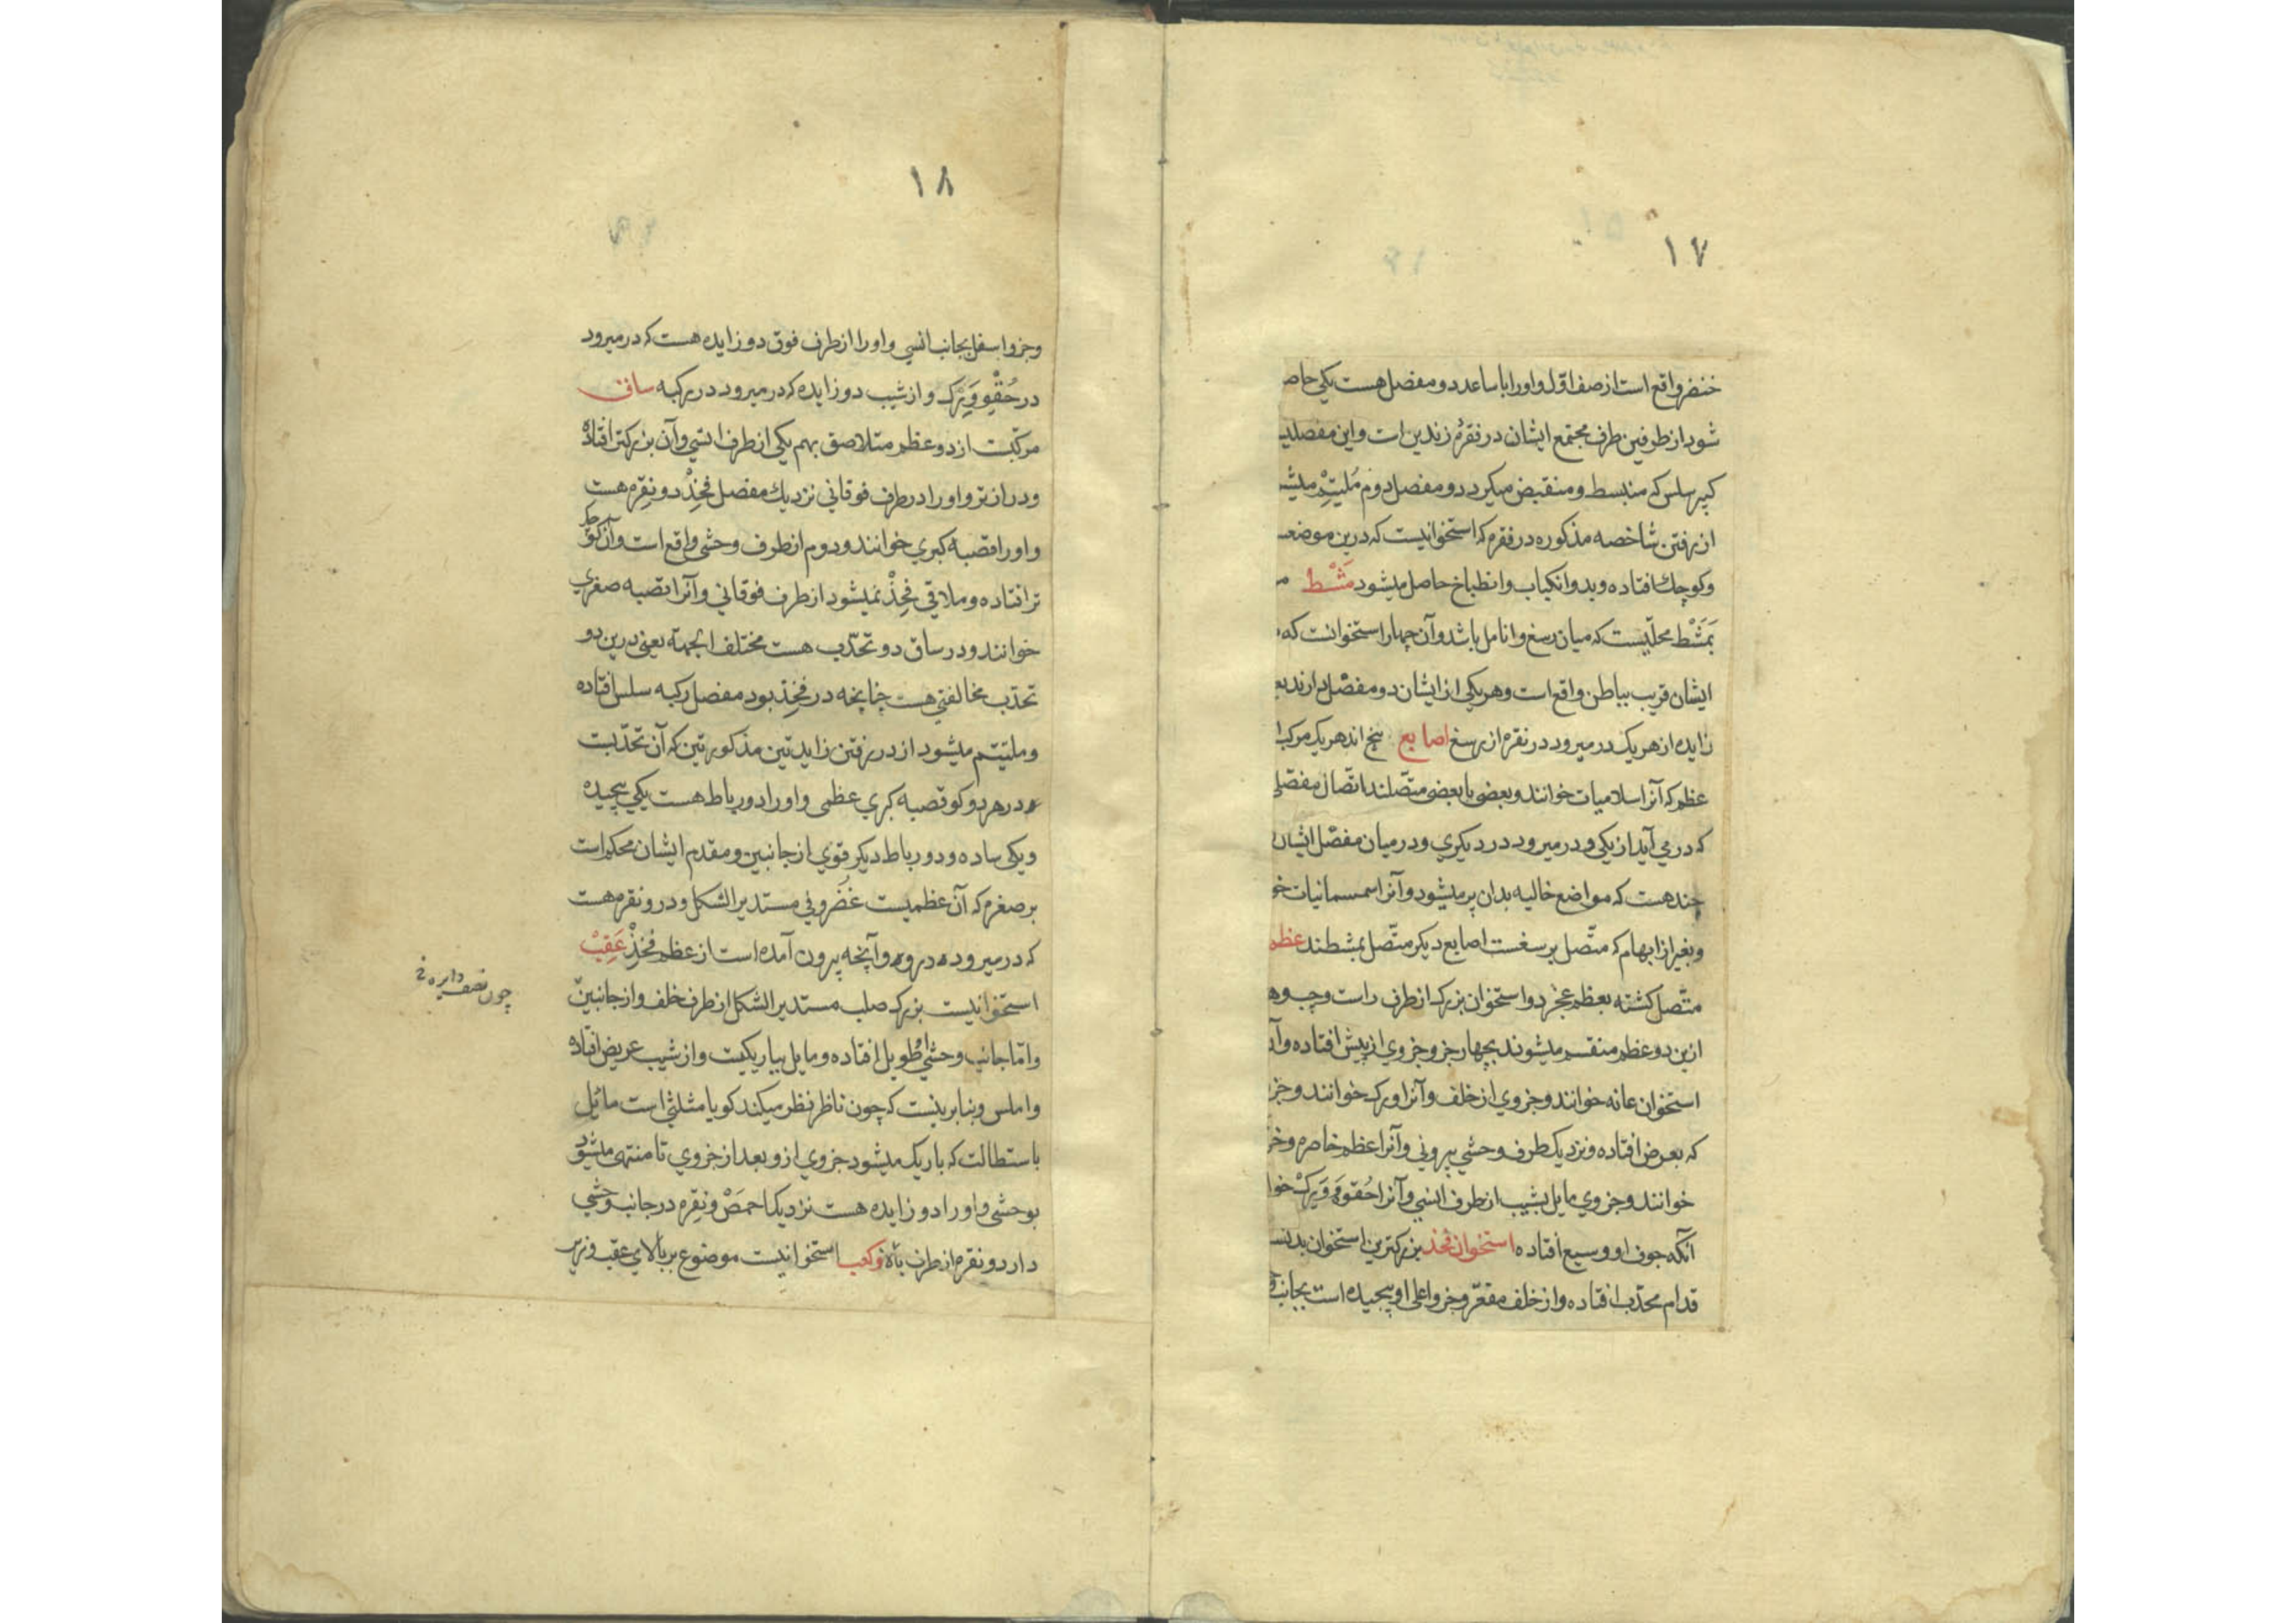 ۱۷
خنضر واقع است از صف اول و اورا با ساعد دو مفصل هست یکی حاص
شود از طرفین طرف مجتمع ایشان در نقرهٔ زندین است و این مفصلیـ
کبیر سلس که منبسط و منقبض میکردد و مفصل دوم ملیتم میشـ
از رفتن شاخصه مذکوره در فقره که استخوانیست که درین موضعـ
وکوچک افتاده وبدو انکیاب وانطباخ حاصل میشود مَشْط مر
بَمَشْط محلّیست که میان رسغ و انامل باشد وآن چهار استخوانست که
ایشان قریب بباطن واقع است وهریکی از ایشان دو مفصل دارند بع
زایده از هریک درمیرود در نقره از رسغ اصابع پنج اند هریک مرکب ا
عظم که آنرا سلامیات خوانند وبعضی با بعضی متصلند اتصال مفصلی
که درمی آید از یکی ودرمیرود در دیکری ودرمیان مفصل ایشان
چند هست که مواضع خالیه بدان پر میشود وآنرا سمسمانیات خو
وبغیر از ابهام که متصل برسغست اصابع دیکر متصل بمشطند عظم
متصل کشته بعظم عجز دو استخوان بزرک از طرف راست وچپ وهر
ازین دو عظم منقسم میشوند بچهار جزو جزوی از پیش افتاده وآن
استخوان عانه خوانند وجزوی از خلف وآنرا ورک خوانند وجز
که بعرض افتاده ونزدیک طرف وحشی بیرونی وآنرا عظم خاصره وحر
خوانند وجزوی مایل بشیب از طرف انسی وآنرا حُقوه وَرِکْ خوا
آنکه جوف او وسیع افتاده استخوان فخذ بزرکترین استخوان بدنست
قدام محدب افتاده واز خلف مقعر وجزو اعلی او پیچیده است بجانب
۱۸
وجزو اسفل بجانب انسی واورا از طرف فوق دو زایده هست که درمیرود
در حُقّهٔ وَرِک واز شیب دو زایده که درمیرود در رکبه ساق
مرکبست از دو عظم متلاصق بهم یکی از طرف انسی وآن بزرکتر افتاده
ودرازتر واورا در طرف فوقانی نزدیک مفصل فَخِذْ دو نقره هست
واورا قصبه کبری خوانند ودوم از طرف وحشی واقع است وآن کوچک
تر افتاده وملاقی فَخِذْ نمیشود از طرف فوقانی وآنرا قصبه صغری
خوانند ودر ساق دو تحدّب هست مختلف الجهة یعنی درین دو
تحدّب مخالفتی هست چنانچه در فَخِذ بود مفصل رکبه سلس افتاده
وملتیم میشود از دررفتن زایدتین مذکورتین که آن تحدبست
در هر دو کو قصبه کبری عظمی واورا دو رباط هست یکی پیچیده
ویکی ساده ودو رباط دیکر قوی از جانبین ومقدم ایشان محکم است
برصغره که آن عظمیست غُضروفی مستدیر الشکل ودرو نقره هست
که درمیرود درو وآنچه بیرون آمده است از عظم فَخِذْ عَقِبْ
استخوانیست بزرک صلب مستدیر الشکل از طرف خلف واز جانبین
چون نصف دایره
واما جانب وحشی او طویل افتاده ومایل بباریکیست واز شیب عریض افتاده
واملس وبنابر ینست که چون ناظر نظر میکند کویا مثلثی است مائل
باستطالت که باریک میشود جزوی ازو بعد از جزوی تا منتهی میشود
بوحشی واورا دو زایده هست نزدیک احمصْ ونقره در جانب وحشی
دارد ونقره از طرف بالا وکعب استخوانیست موضوع بر بالای عقب وزیر